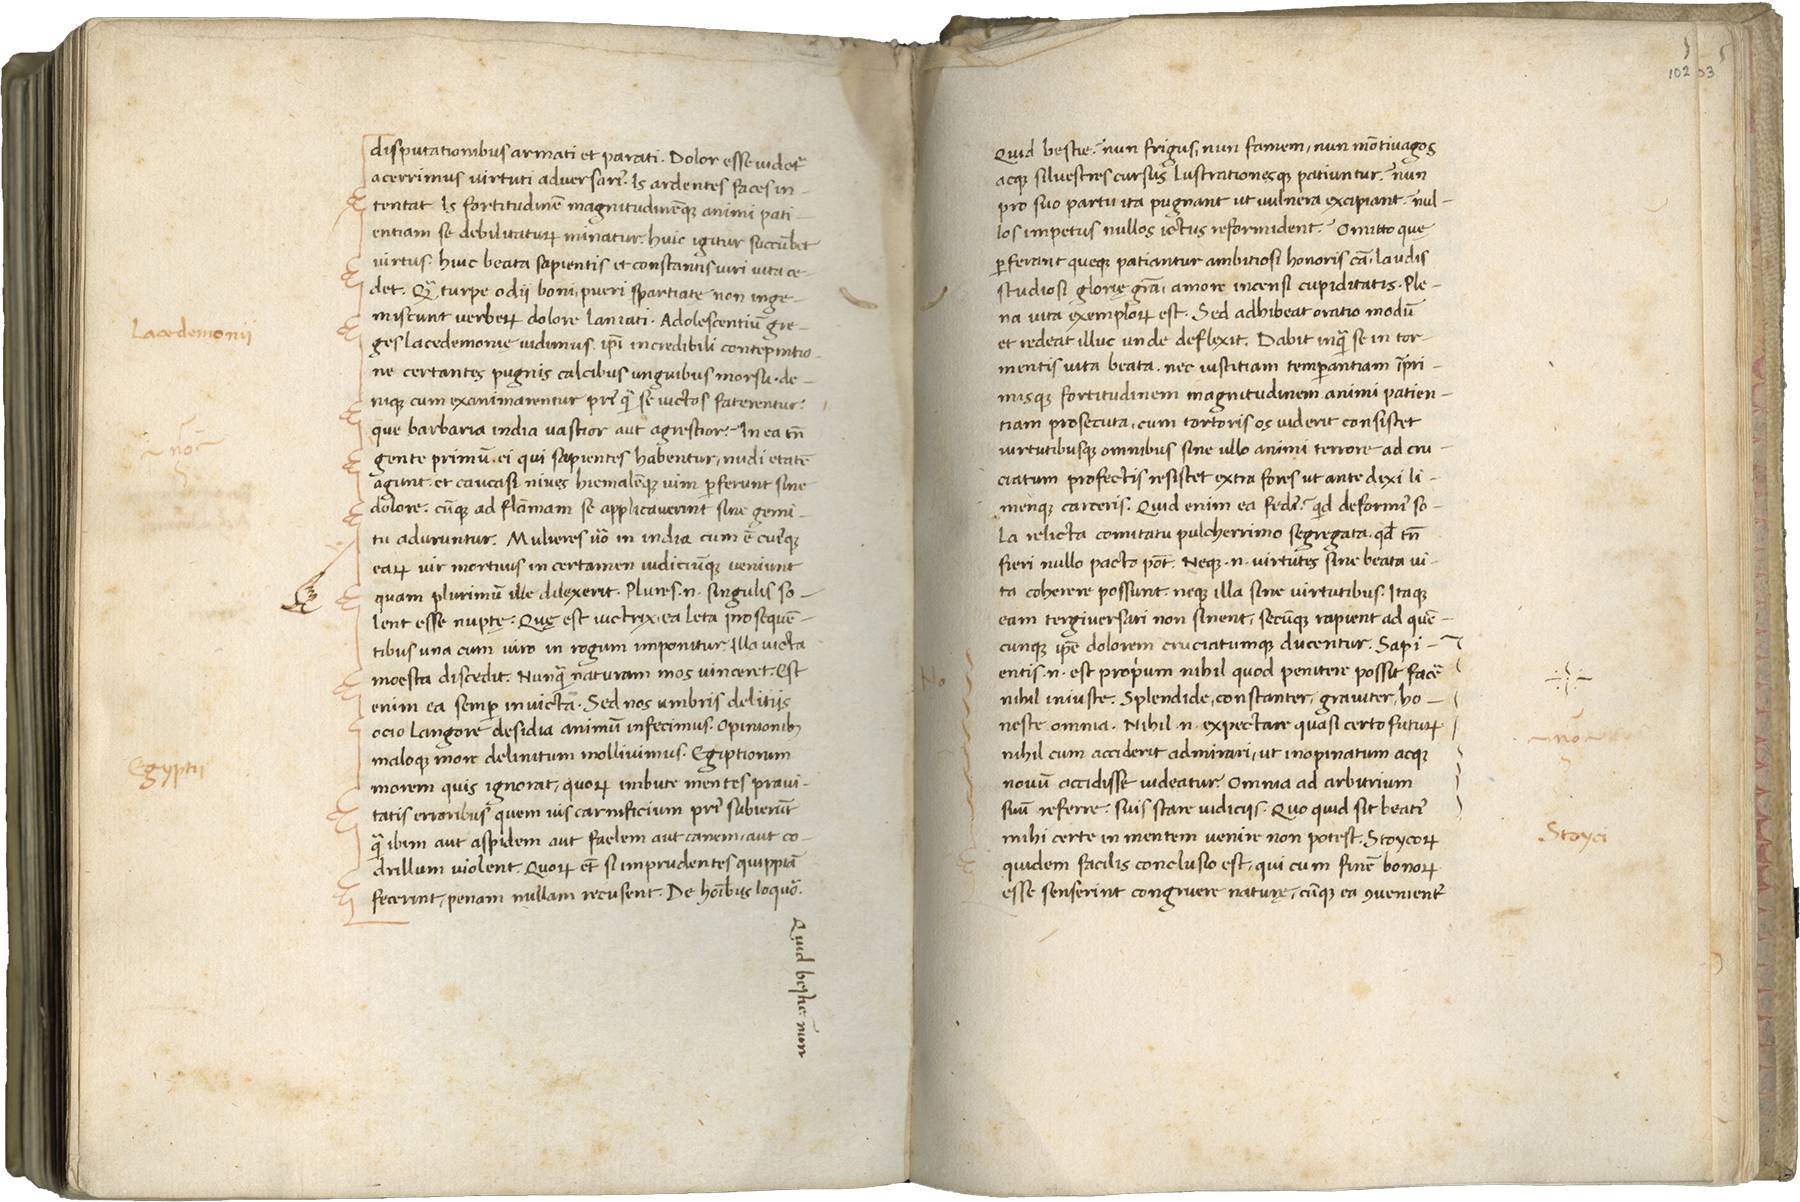 disputationibus armati et parati. Dolor esse videt᷑
acerrimus virtuti adversari᷑. Is ardentes faces in-
tentat Is fortitudinē magnitudinēqꝫ animi pati-
entiam se debilitaturꝝ minatur. huic igitur succūbet
virtus. huic beata sapientis et constantis viri vita ce-
det. Qᷓ turpe o dii boni, pueri spartiate non inge-
miscunt verberꝝ dolore laniati. Adolescentiū gre-
ges lacedemonię vidimus. ip̄i incredibili contēptio-
ne certantes pugnis calcibus unguibus morsu. de-
niqꝫ cum exanimarentur pri᷑ qᷓ se victos faterentur.
que barbaria india vastior aut agrestior? In ea tn̄
gente primū. ei qui sapientes habentur, nudi etatē
agunt. et caucasi nives hiemalēqꝫ vim ꝑferunt sine
dolore. cūqꝫ ad flāmam se applicaverint sine gemi-
tu aduruntur. Mulieres ūo in india cum ē cui᷑qꝫ
earꝝ vir mortuus in certamen iudiciūqꝫ veniunt
quam plurimū ille dilexerit. Plures .n. singulis so-
lent esse nuptę. Quę est victrix, ea leta prosequē-
tibus una cum viro in rogum imponitur. Illa victa
moesta discedit. Nunqᷓ naturam mos vinceret. Est
enim ea semꝑ invicta. Sed nos umbris delitiis
ocio langore desidia animū infecimus. Opinionibꝫ
maloqꝫ more delinitum mollivimus. Egiptiorum
morem quis ignorat, quorꝝ imbute mentes pravi-
tatis erroribus quem vis carnificium pri᷑ subierūt
qᷓ ibim aut aspidem aut faelem aut canem, aut co-
drillum violent. Quorꝝ et̄ si imprudentes quippiā
fecerint, penam nullam recusent. De hoībus loquo᷑.
Quid bestie nun
Lacedemonii
nō
Egyptii
Quid bestie? nun frigus, nun famem, nun mōtivagos
acqꝫ silvestres cursus lustrationesqꝫ patiuntur? nun
pro suo partu ita pugnant ut vulnera excipiant. nul-
los impetus nullos ictus reformident? Omitto quę
ꝑferant queqꝫ patiantur ambitiosi honoris cā, laudis
studiosi glorię grā, amore incensi cupiditatis. Ple-
na vita exemplorꝝ est. Sed adhibeat oratio modū
et redeat illuc unde deflexit. Dabit inqᷓ se in tor-
mentis vita beata. nec iustitiam temperantiam īpri-
misqꝫ fortitudinem magnitudinem animi patien-
tiam prosecuta, cum tortoris os viderit consistet
virtutibusqꝫ omnibus sine ullo animi terrore ad cru-
ciatum profectis resistet extra fores ut ante dixi li-
menqꝫ carceris. Quid enim ea fedi᷑? qͥd deformi᷑ so-
la relicta comitatu pulcherrimo segregata. qd̄ tn̄
fieri nullo pacto pōt. Neqꝫ .n. virtutes sine beata vi-
ta coherere possunt. neqꝫ illa sine virtutibus. Itaqꝫ
eam tergiversari non sinent, secūqꝫ rapient ad quē-
cunqꝫ ip̄e dolorem cruciatumqꝫ ducentur. Sapi-
entis .n. est proprium nihil quod penitere possit facē
nihil iniuste. Splendide, constanter, graviter, ho-
neste omnia. Nihil .n. expectare quasi certo futurꝝ
nihil cum acciderit admirari, ut inopinatum acqꝫ
novū accidisse videatur. Omnia ad arbitrium
suū referre. suis stare iudiciis. Quo quid sit beati᷑
mihi certe in mentem venire non potest. Stoycorꝝ
quidem facilis conclusio est, qui cum finē bonorꝝ
esse senserint congruere naturę, cūqꝫ ea ꝯvenient᷑
No
nō
Stoyci
102